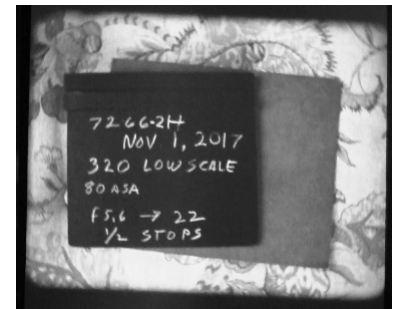 7266-2H
NOV 1, 2017
320 LOW SCALE
80 ASA
F5.6 → 22
1/2 STOPS